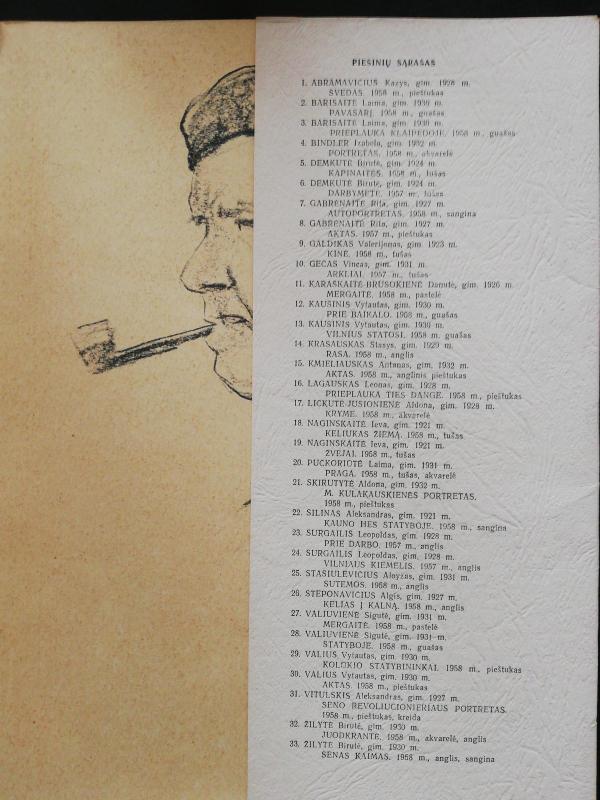 PIEŠINIŲ SĄRAŠAS
1. ABRAMAVIČIUS Kazys, gim. 1928 m.
ŠVEDAS. 1958 m., pieštukas
2. BARISAITĖ Laima, gim. 1930 m.
PAVASARĮ. 1958 m., guašas
3. BARISAITĖ Laima, gim. 1930 m.
PRIEPLAUKA KLAIPĖDOJE. 1958 m., guašas
4. BINDLER Izabela, gim. 1932 m.
PORTRETAS. 1958 m., akvarelė
5. DEMKUTĖ Birutė, gim. 1924 m.
KAPINAITĖS. 1958 m., tušas
6. DEMKUTĖ Birutė, gim. 1924 m.
DARBYMETĖ. 1957 m., tušas
7. GABRĖNAITĖ Rita, gim. 1927 m.
AUTOPORTRETAS. 1958 m., sangina
8. GABRĖNAITĖ Rita, gim. 1927 m.
AKTAS. 1957 m., pieštukas
9. GALDIKAS Valerijonas, gim. 1923 m.
KINĖ. 1958 m., tušas
10. GEČAS Vincas, gim. 1931 m.
ARKLIAI. 1957 m., tušas
11. KARAŠKAITĖ-BRUSOKIENĖ Danutė, gim. 1926 m.
MERGAITĖ. 1958 m., pastelė
12. KAUŠINIS Vytautas, gim. 1930 m.
PRIE BAIKALO. 1958 m., guašas
13. KAUŠINIS Vytautas, gim. 1930 m.
VILNIUS STATOSI. 1958 m. guašas
14. KRASAUSKAS Stasys, gim. 1929 m.
RASA. 1958 m., anglis
15. KMIELIAUSKAS Antanas, gim. 1932 m.
AKTAS. 1958 m., anglinis pieštukas
16. LAGAUSKAS Leonas, gim. 1928 m.
PRIEPLAUKA TIES DANGE. 1958 m., pieštukas
17. LICKUTĖ-JUSIONIENĖ Aldona, gim. 1928 m.
KRYME. 1958 m., akvarelė
18. NAGINSKAITĖ Ieva, gim. 1921 m.
KELIUKAS ŽIEMĄ. 1958 m., tušas
19. NAGINSKAITĖ Ieva, gim. 1921 m.
ŽVEJAI. 1958 m., tušas
20. PUČKORIŪTĖ Laima, gim. 1931 m.
PRAGA. 1958 m., tušas, akvarelė
21. SKIRUTYTĖ Aldona, gim. 1932 m.
M. KULAKAUSKIENĖS PORTRETAS.
1958 m., pieštukas
22. ŠILINAS Aleksandras, gim. 1921 m.
KAUNO HES STATYBOJE. 1958 m., sangina
23. SURGAILIS Leopoldas, gim. 1928 m.
PRIE DARBO. 1957 m., anglis
24. SURGAILIS Leopoldas, gim. 1928 m.
VILNIAUS KIEMELIS. 1957 m., anglis
25. STASIULEVIČIUS Aloyzas, gim. 1931 m.
SUTEMOS. 1958 m., anglis
26. STEPONAVIČIUS Algis, gim. 1927 m.
KELIAS Į KALNĄ. 1958 m., anglis
27. VALIUVIENĖ Sigutė, gim. 1931 m.
MERGAITĖ. 1958 m., pastelė
28. VALIUVIENĖ Sigutė, gim. 1931 m.
STATYBOJE. 1958 m., guašas
29. VALIUS Vytautas, gim. 1930 m.
KOLŪKIO STATYBININKAI. 1958 m., pieštukas
30. VALIUS Vytautas, gim. 1930 m.
AKTAS. 1958 m., pieštukas
31. VITULSKIS Aleksandras, gim. 1927 m.
SENO REVOLIUCIONIERIAUS PORTRETAS.
1958 m., pieštukas, kreida
32. ŽILYTĖ Birutė, gim. 1930 m.
JUODKRANTĖ. 1958 m., akvarelė, anglis
33. ŽILYTĖ Birutė, gim. 1930 m.
SENAS KAIMAS. 1958 m., anglis, sangina